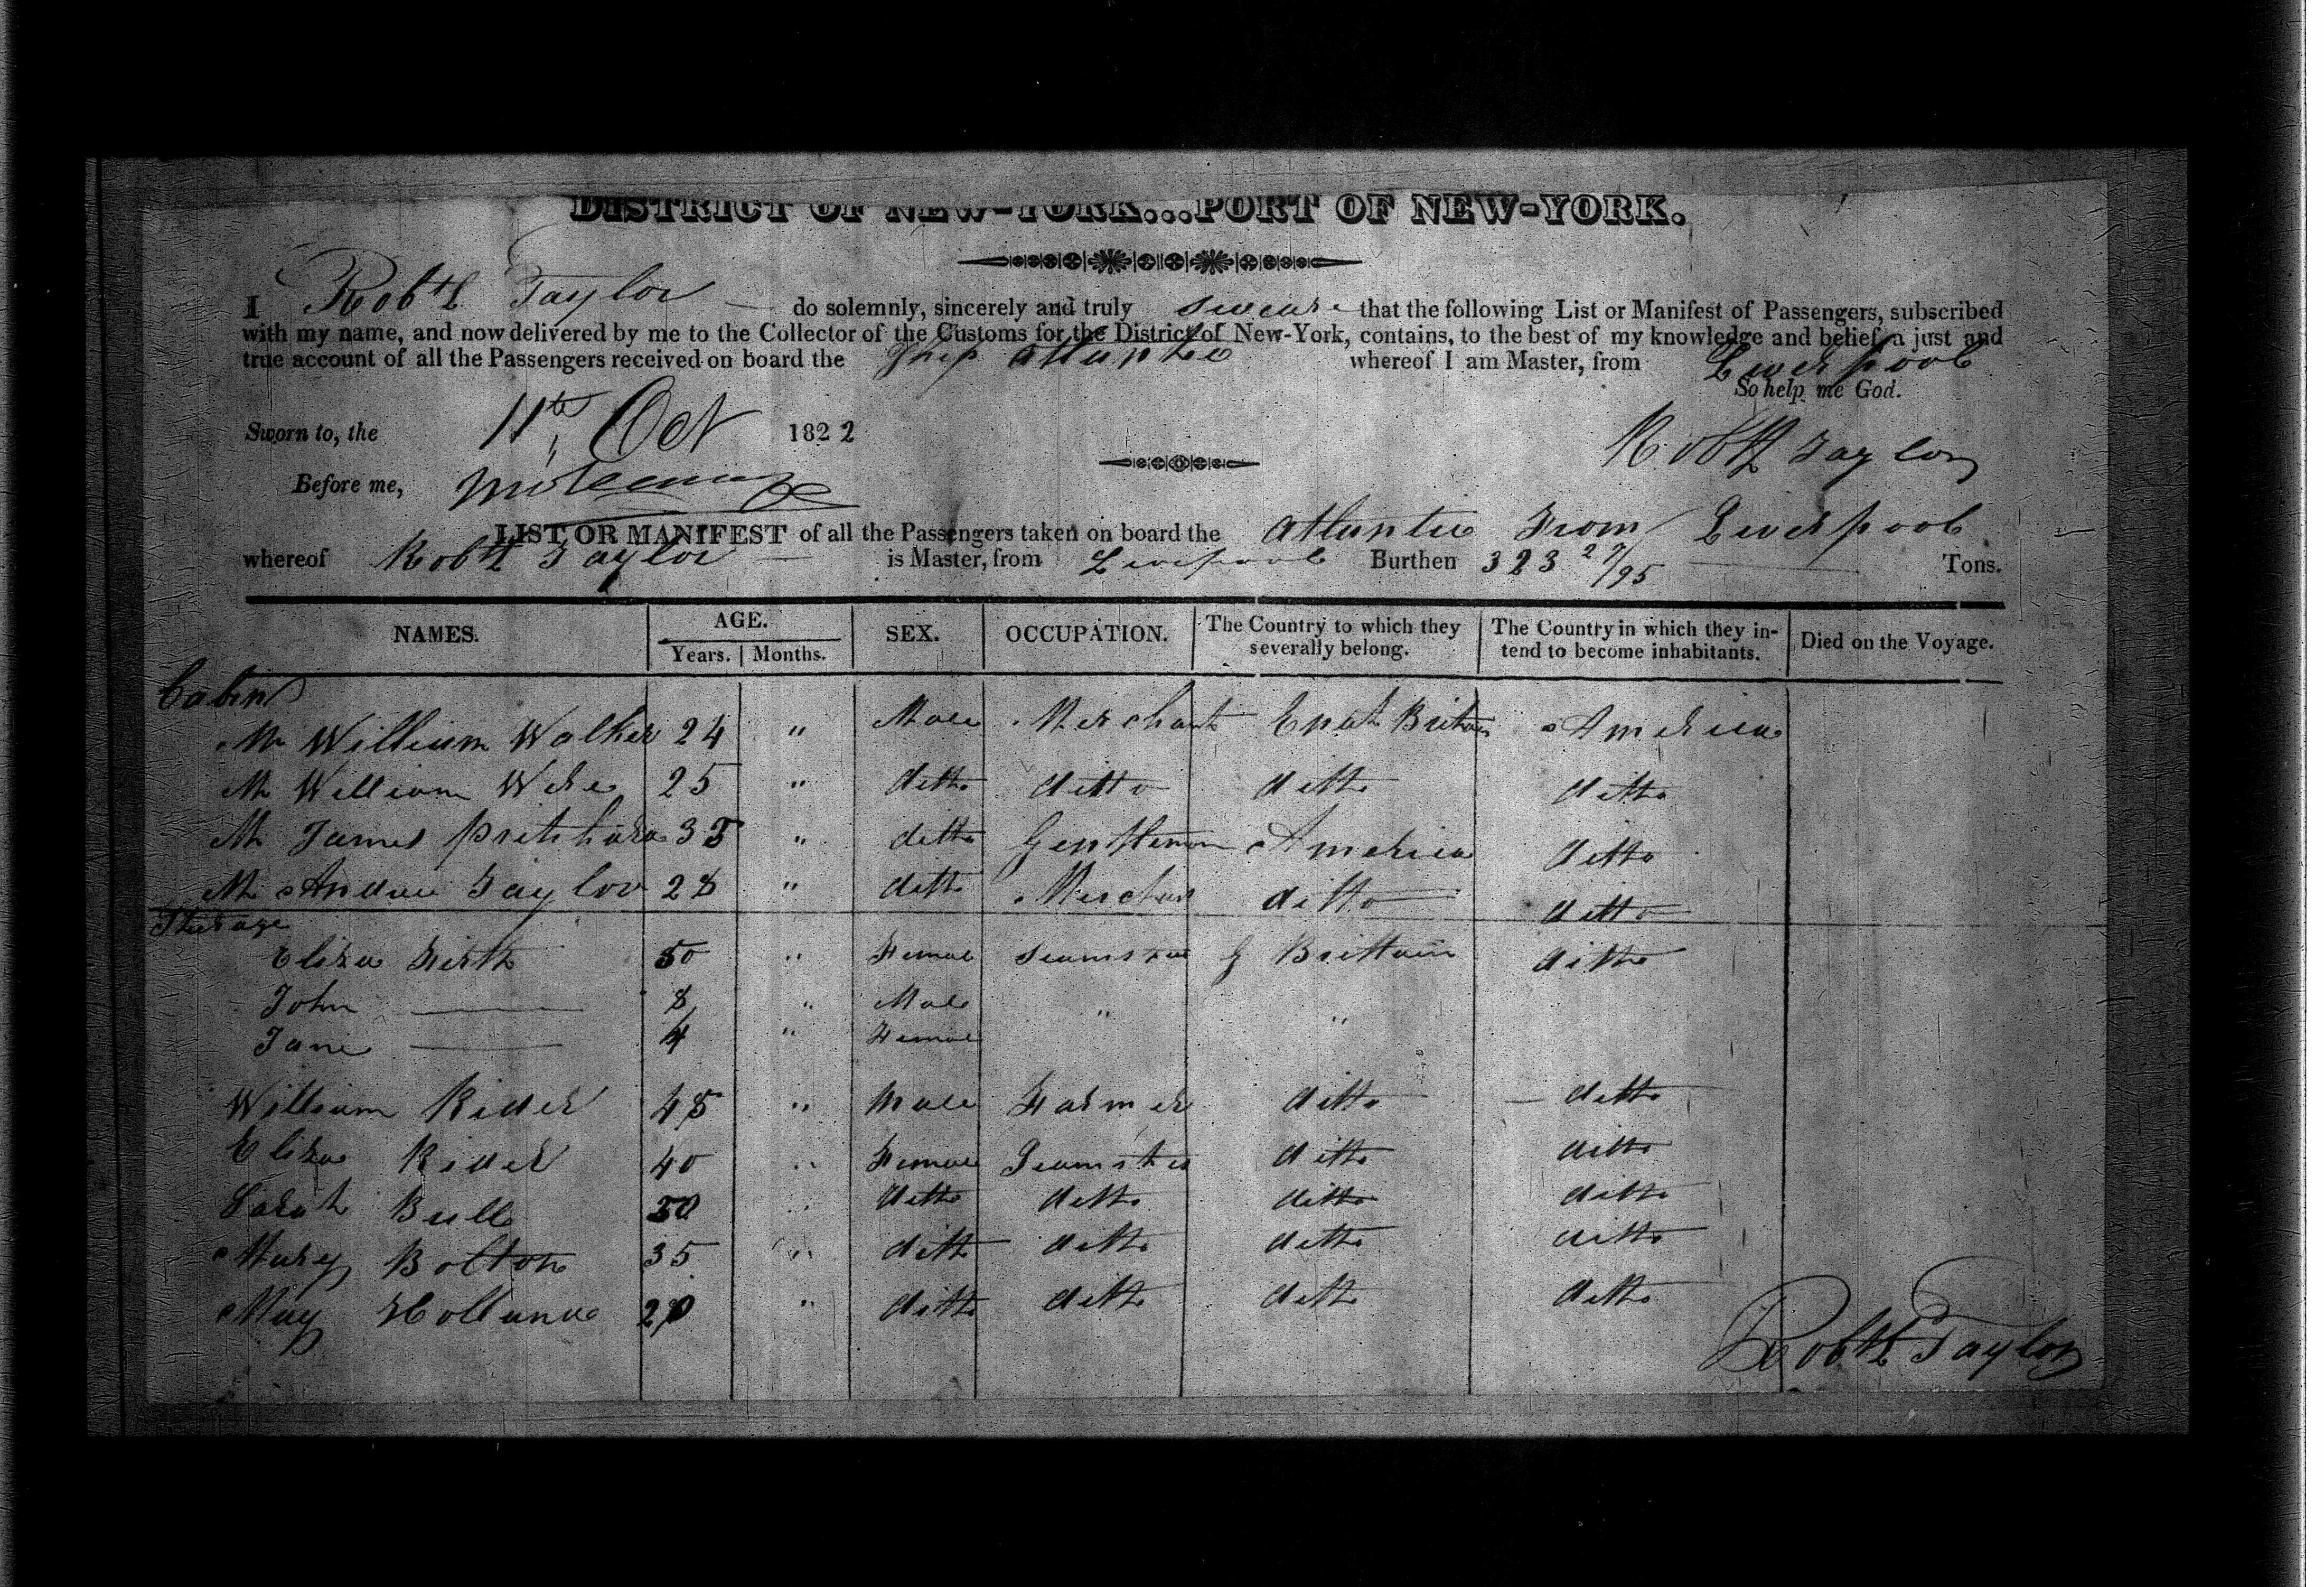 DISTRICT OF NEW-YORK...PORT OF NEW-YORK.
I Robt Taylor do solemnly, sincerely and truly swear that the following List or Manifest of Passengers, subscribed
with my name, and now delivered by me to the Collector of the Customs for the District of New-York, contains, to the best of my knowledge and belief, a just and
true account of all the Passengers received on board the Ship Atlantic whereof I am Master, from Liverpool
So help me God.
Sworn to, the 11th Oct 1822
Robt Taylor
Before me,
LIST OR MANIFEST of all the Passengers taken on board the Atlantic From Liverpool
whereof Robt Taylor is Master, from Liverpool Burthen 323 27/95 Tons.
NAMES. AGE. Years. Months. SEX. OCCUPATION. The Country to which they severally belong. The Country in which they intend to become inhabitants. Died on the Voyage.
Cabin
Mr William Walker 24 " Male Merchant Great Britain America
Mr William Were 25 " ditto ditto ditto ditto
Mr James Pritchard 35 " ditto Gentleman America ditto
Mr Andrew Taylor 28 " ditto Merchant ditto ditto
Steerage
Eliza Firth 50 " Female Seamstress G Brittain ditto
John 8 " Male " "
Jane 4 " Female
William Rider 48 " Male Farmer ditto ditto
Eliza Rider 40 " Female Seamstress ditto ditto
Sarah Bull 50 " ditto ditto ditto ditto
Mary Bolton 35 " ditto ditto ditto ditto
May Holland 20 " ditto ditto ditto ditto
Robt Taylor